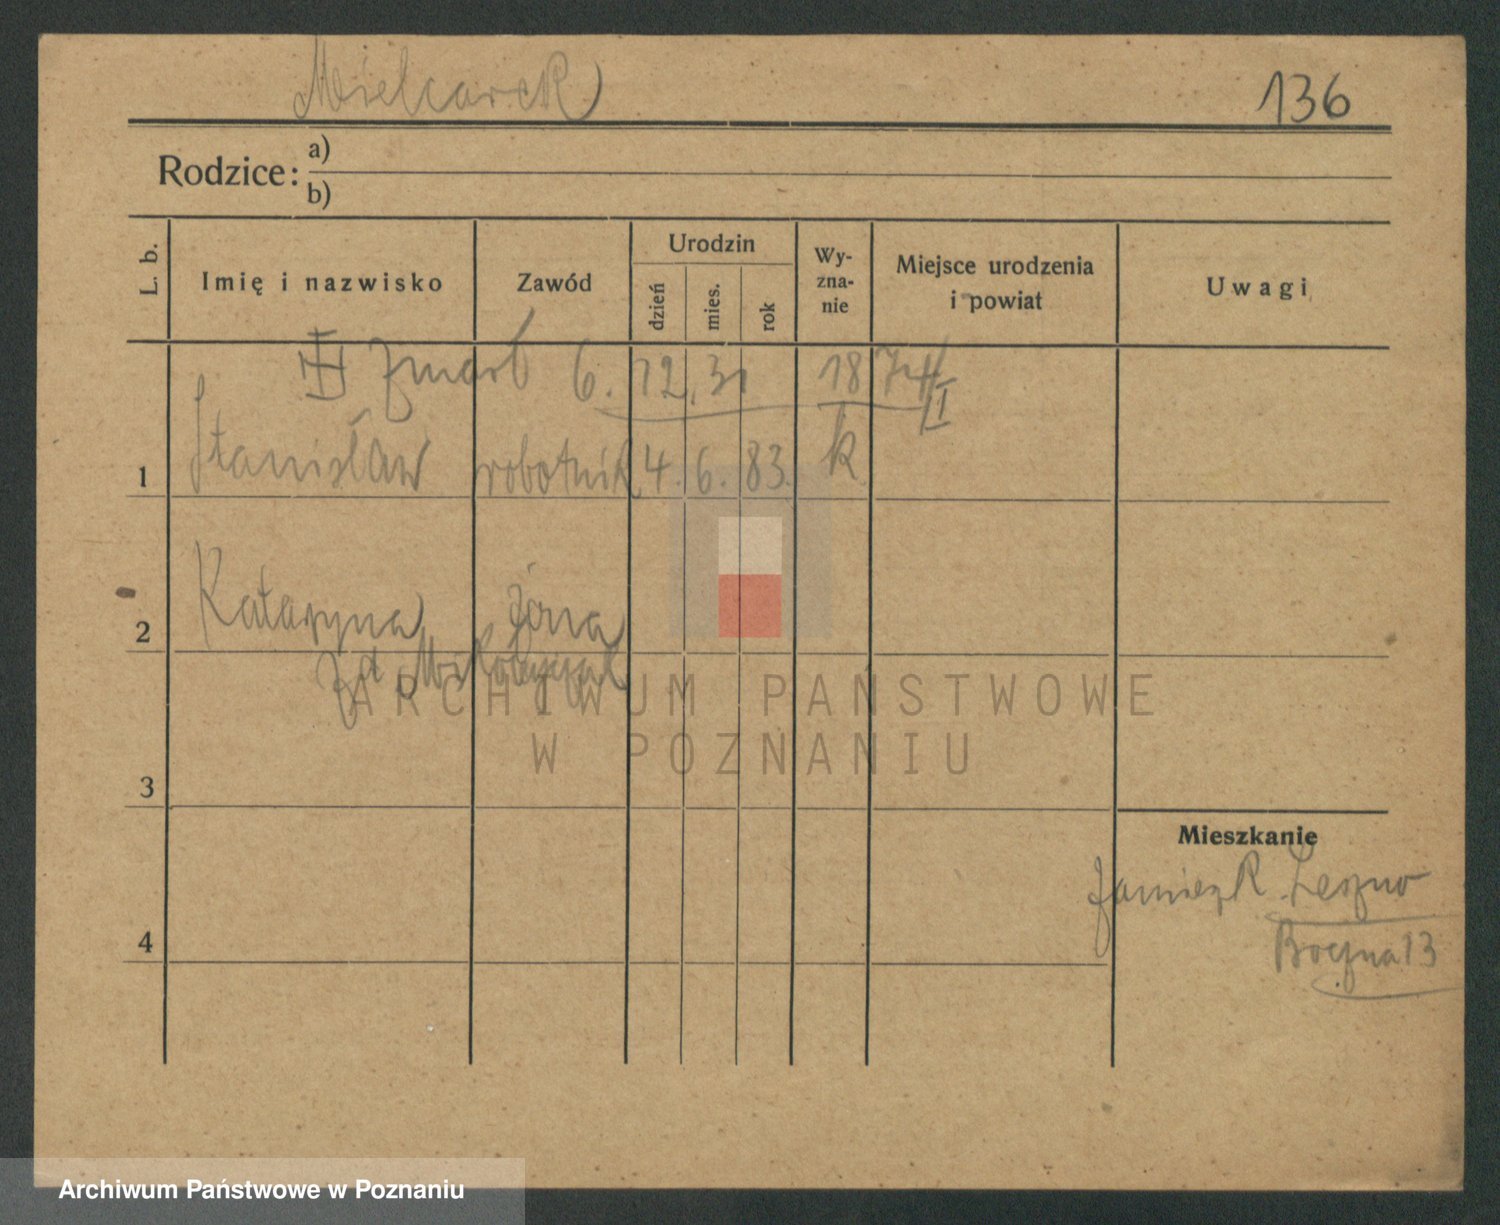 Mielcarek 136
Rodzice: a)
b)
L. b. Imię i nazwisko Zawód Urodzin dzień mies. rok Wy-zna-nie Miejsce urodzenia i powiat Uwagi
Zmarł 6. 12. 31 1874/I
1 Stanisław robotnik 4. 6. 83. k
2 Katarzyna żona
zd.
3
Mieszkanie
zamieszk. Leszno
4
13
ARCHIWUM PAŃSTWOWE
W POZNANIU
Archiwum Państwowe w Poznaniu